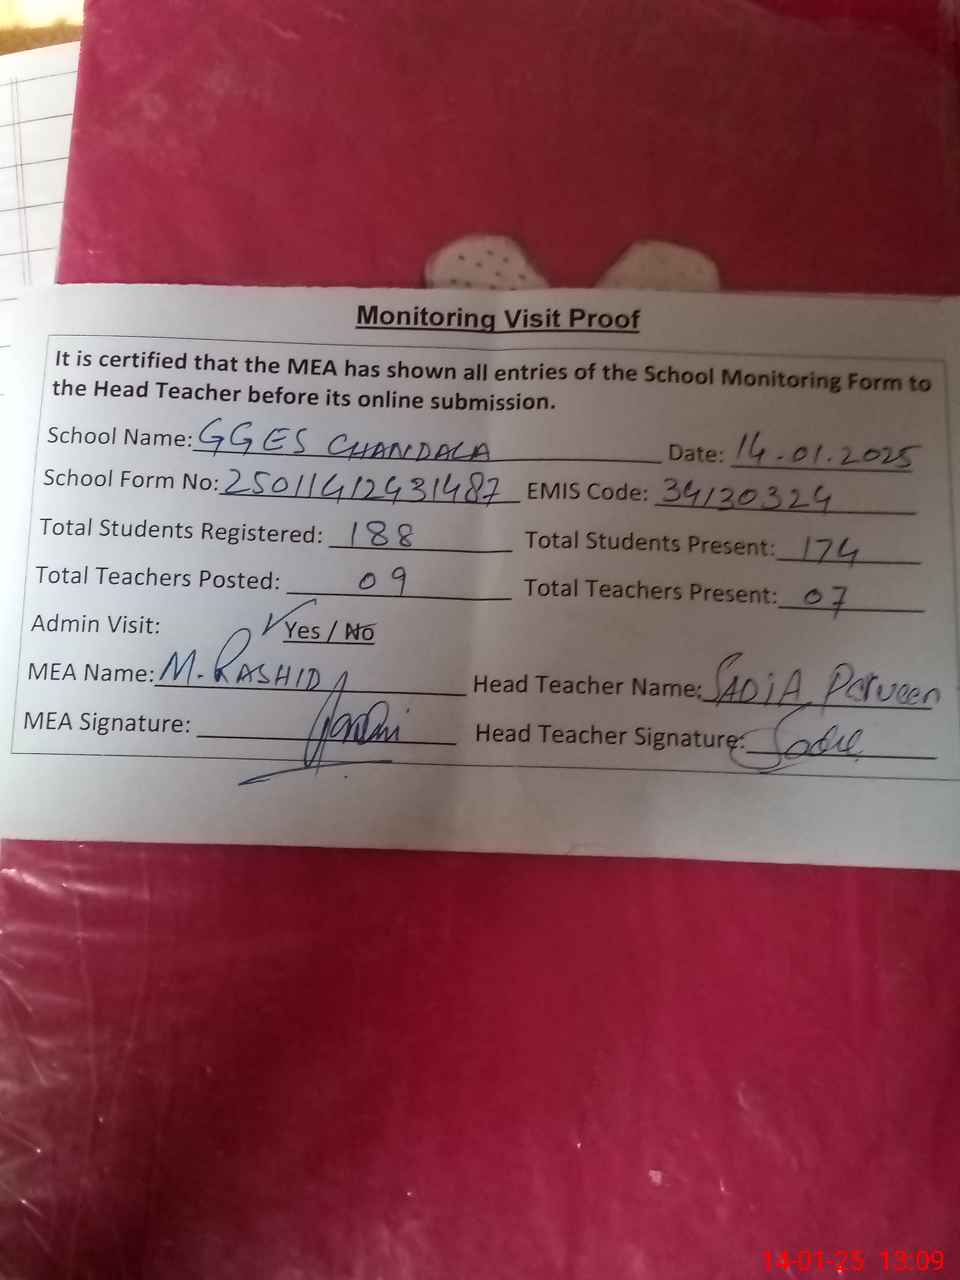 Monitoring Visit Proof
It is certified that the MEA has shown all entries of the School Monitoring Form to
the Head Teacher before its online submission.
School Name: GGES CHANDALA Date: 14.01.2025
School Form No: 25011412431487 EMIS Code: 34130324
Total Students Registered: 188 Total Students Present: 174
Total Teachers Posted: 09 Total Teachers Present: 07
Admin Visit: Yes / No
MEA Name: M. RASHID Head Teacher Name: SADiA Parveen
MEA Signature: Head Teacher Signature:
14-01-25 13:09